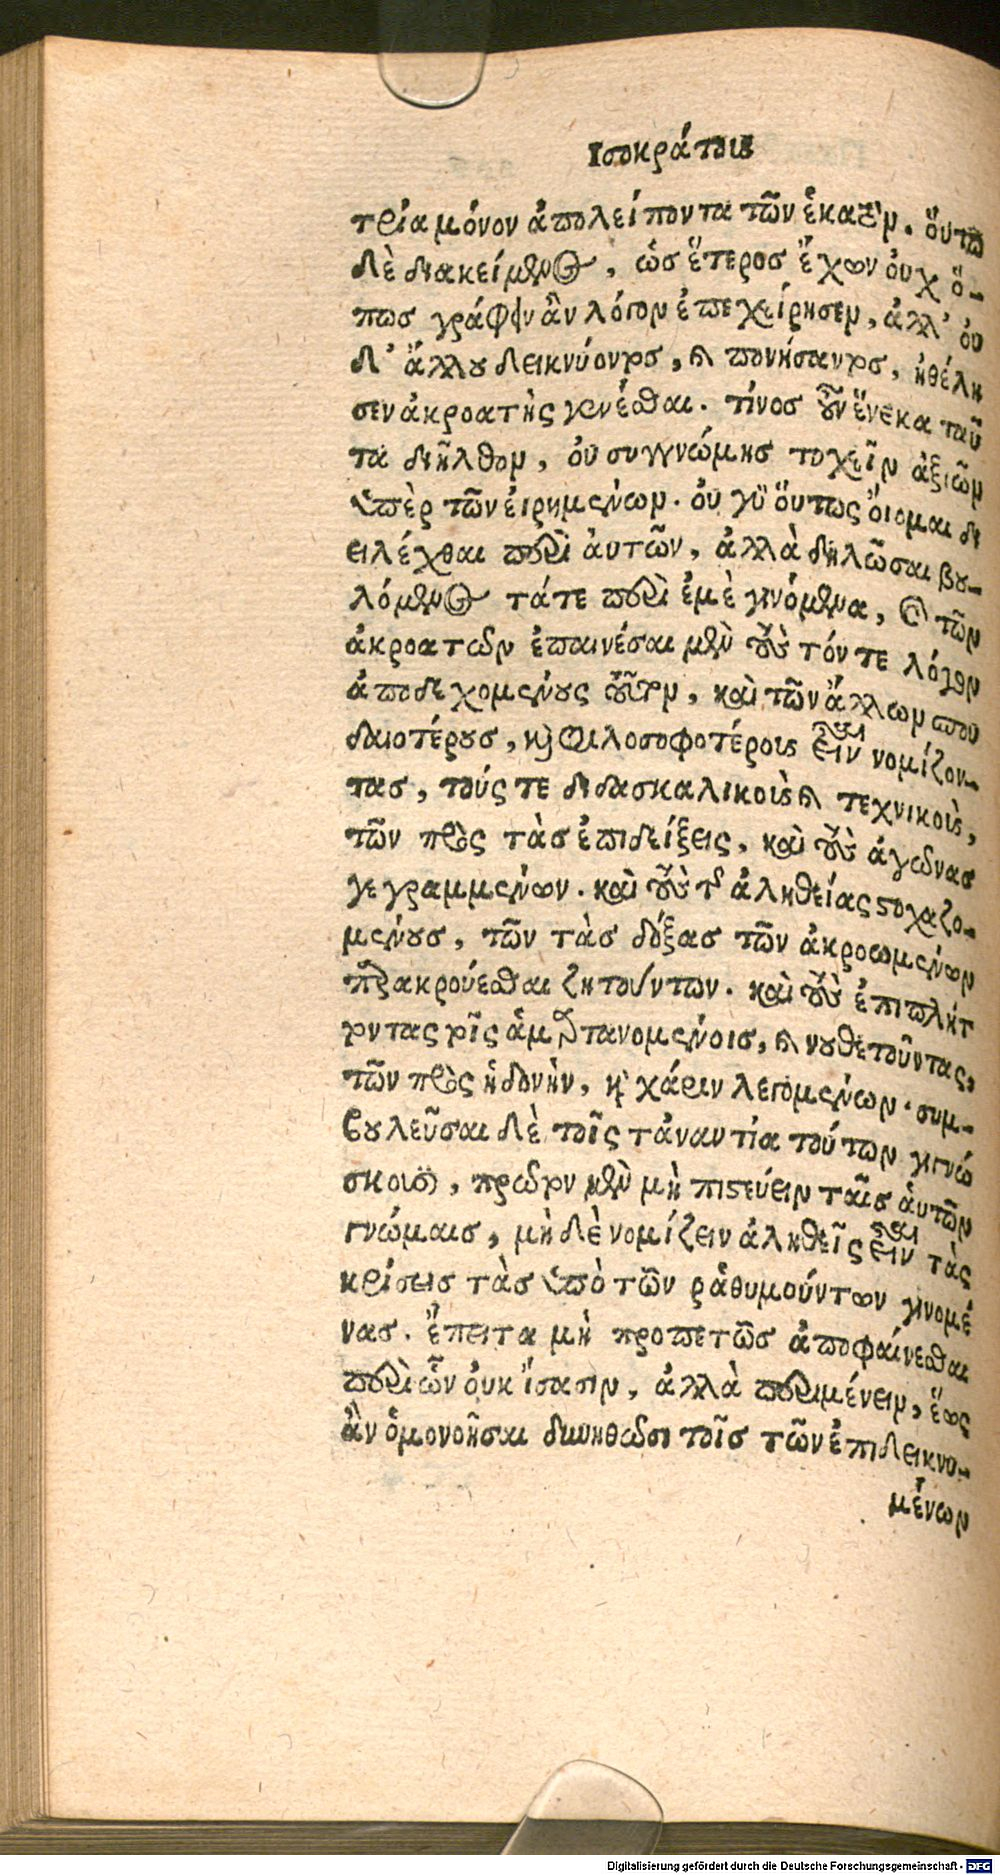 Ισοκράτους
τρία μόνον ἀπολείποντα τῶν ἑκατόν. οὕτω
δὲ διακείμενος, ὡς ἕτερος ἔχων οὐχ ὅ-
πως γράφειν ἂν λόγον ἐπεχείρησεν, ἀλλ' οὐ
δ' ἄλλου δεικνύοντος, καὶ πονήσαντος, ἠθέλη
σεν ἀκροατὴς γενέσθαι. τίνος οὖν ἕνεκα ταῦ
τα διῆλθον, οὐ συγγνώμης τυχεῖν ἀξιῶν
ὑπὲρ τῶν εἰρημένων. οὐ γὰρ οὕτως οἴομαι δι
ειλέχθαι περὶ αὐτῶν, ἀλλὰ δηλῶσαι βου-
λόμενος τά τε περὶ ἐμὲ γινόμενα, καὶ τῶν
ἀκροατῶν ἐπαινέσαι μὲν τοὺς τόν τε λόγον
ἀποδεχομένους τοῦτον, καὶ τῶν ἄλλων σπου
δαιοτέρους, καὶ φιλοσοφοτέρους εἶναι νομίζον-
τας, τούς τε διδασκαλικοὺς καὶ τεχνικοὺς,
τῶν πρὸς τὰς ἐπιδείξεις, καὶ τοὺς ἀγῶνας
γεγραμμένων. καὶ τοὺς τῆς ἀληθείας στοχαζο-
μένους, τῶν τὰς δόξας τῶν ἀκροωμένων
παρακρούεσθαι ζητούντων. καὶ τοὺς ἐπιπλήτ
τοντας τοῖς ἁμαρτανομένοις, καὶ νουθετοῦντας,
τῶν πρὸς ἡδονὴν, καὶ χάριν λεγομένων. συμ-
βουλεῦσαι δὲ τοῖς τἀναντία τούτων γιγνώ
σκουσι, πρῶτον μὲν μὴ πιστεύειν ταῖς αὑτῶν
γνώμαις, μὴ δὲ νομίζειν ἀληθεῖς εἶναι τὰς
κρίσεις τὰς ὑπὸ τῶν ῥᾳθυμούντων γινομέ
νας. ἔπειτα μὴ προπετῶς ἀποφαίνεσθαι
περὶ ὧν οὐκ ἴσασιν, ἀλλὰ περιμένειν, ἕως
ἂν ὁμονοῆσαι δυνηθῶσι τοῖς τῶν ἐπιδεικνυ-
μένων
Digitalisierung gefördert durch die Deutsche Forschungsgemeinschaft - DFG